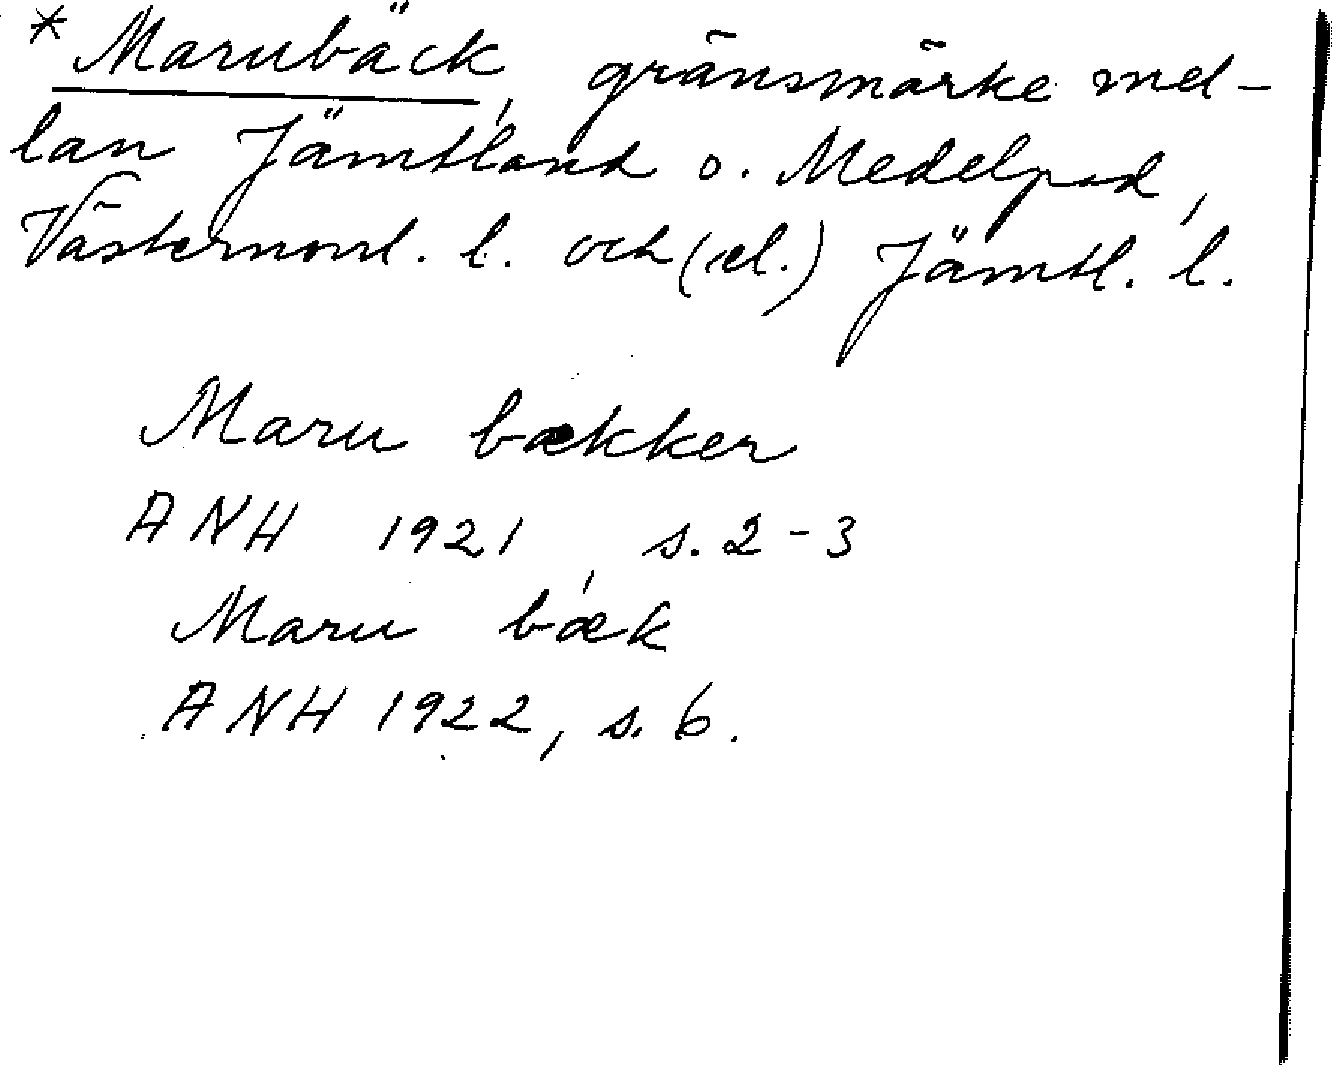 * Marubäck, gränsmärke mel-
lan Jämtland o. Medelpad,
Västernorrl. l. och (el.) Jämtl. l.
Maru bækker
ANH 1921, s. 2-3
Maru bæk
ANH 1922, s. 6.